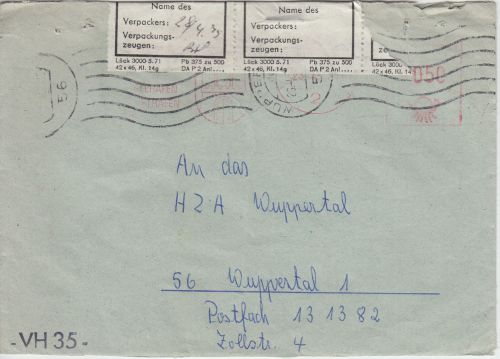 Name des
Verpackers:
Verpackungs-
zeugen:
Lück 3000 5.71 Pb 375 zu 500
42 x 46, Kl. 14g DA P 2 Anl....
Name des
Verpackers:
Verpackungs-
zeugen:
Lück 3000 5.71 Pb 375 zu 500
42 x 46, Kl. 14g DA P 2 Anl....
ze
Lück 3000
42 x 46, Kl. 14g
050
56
An das
HZA Wuppertal
56 Wuppertal 1
Postfach 13 13 82
Zollstr. 4
- VH 35 -